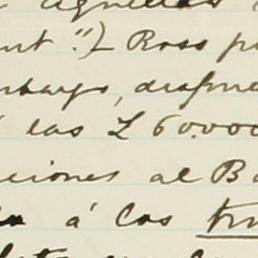 aquellas
unt".) Ross p
mbargo, despue
á las £60.000
ciones al Ba
á los tru